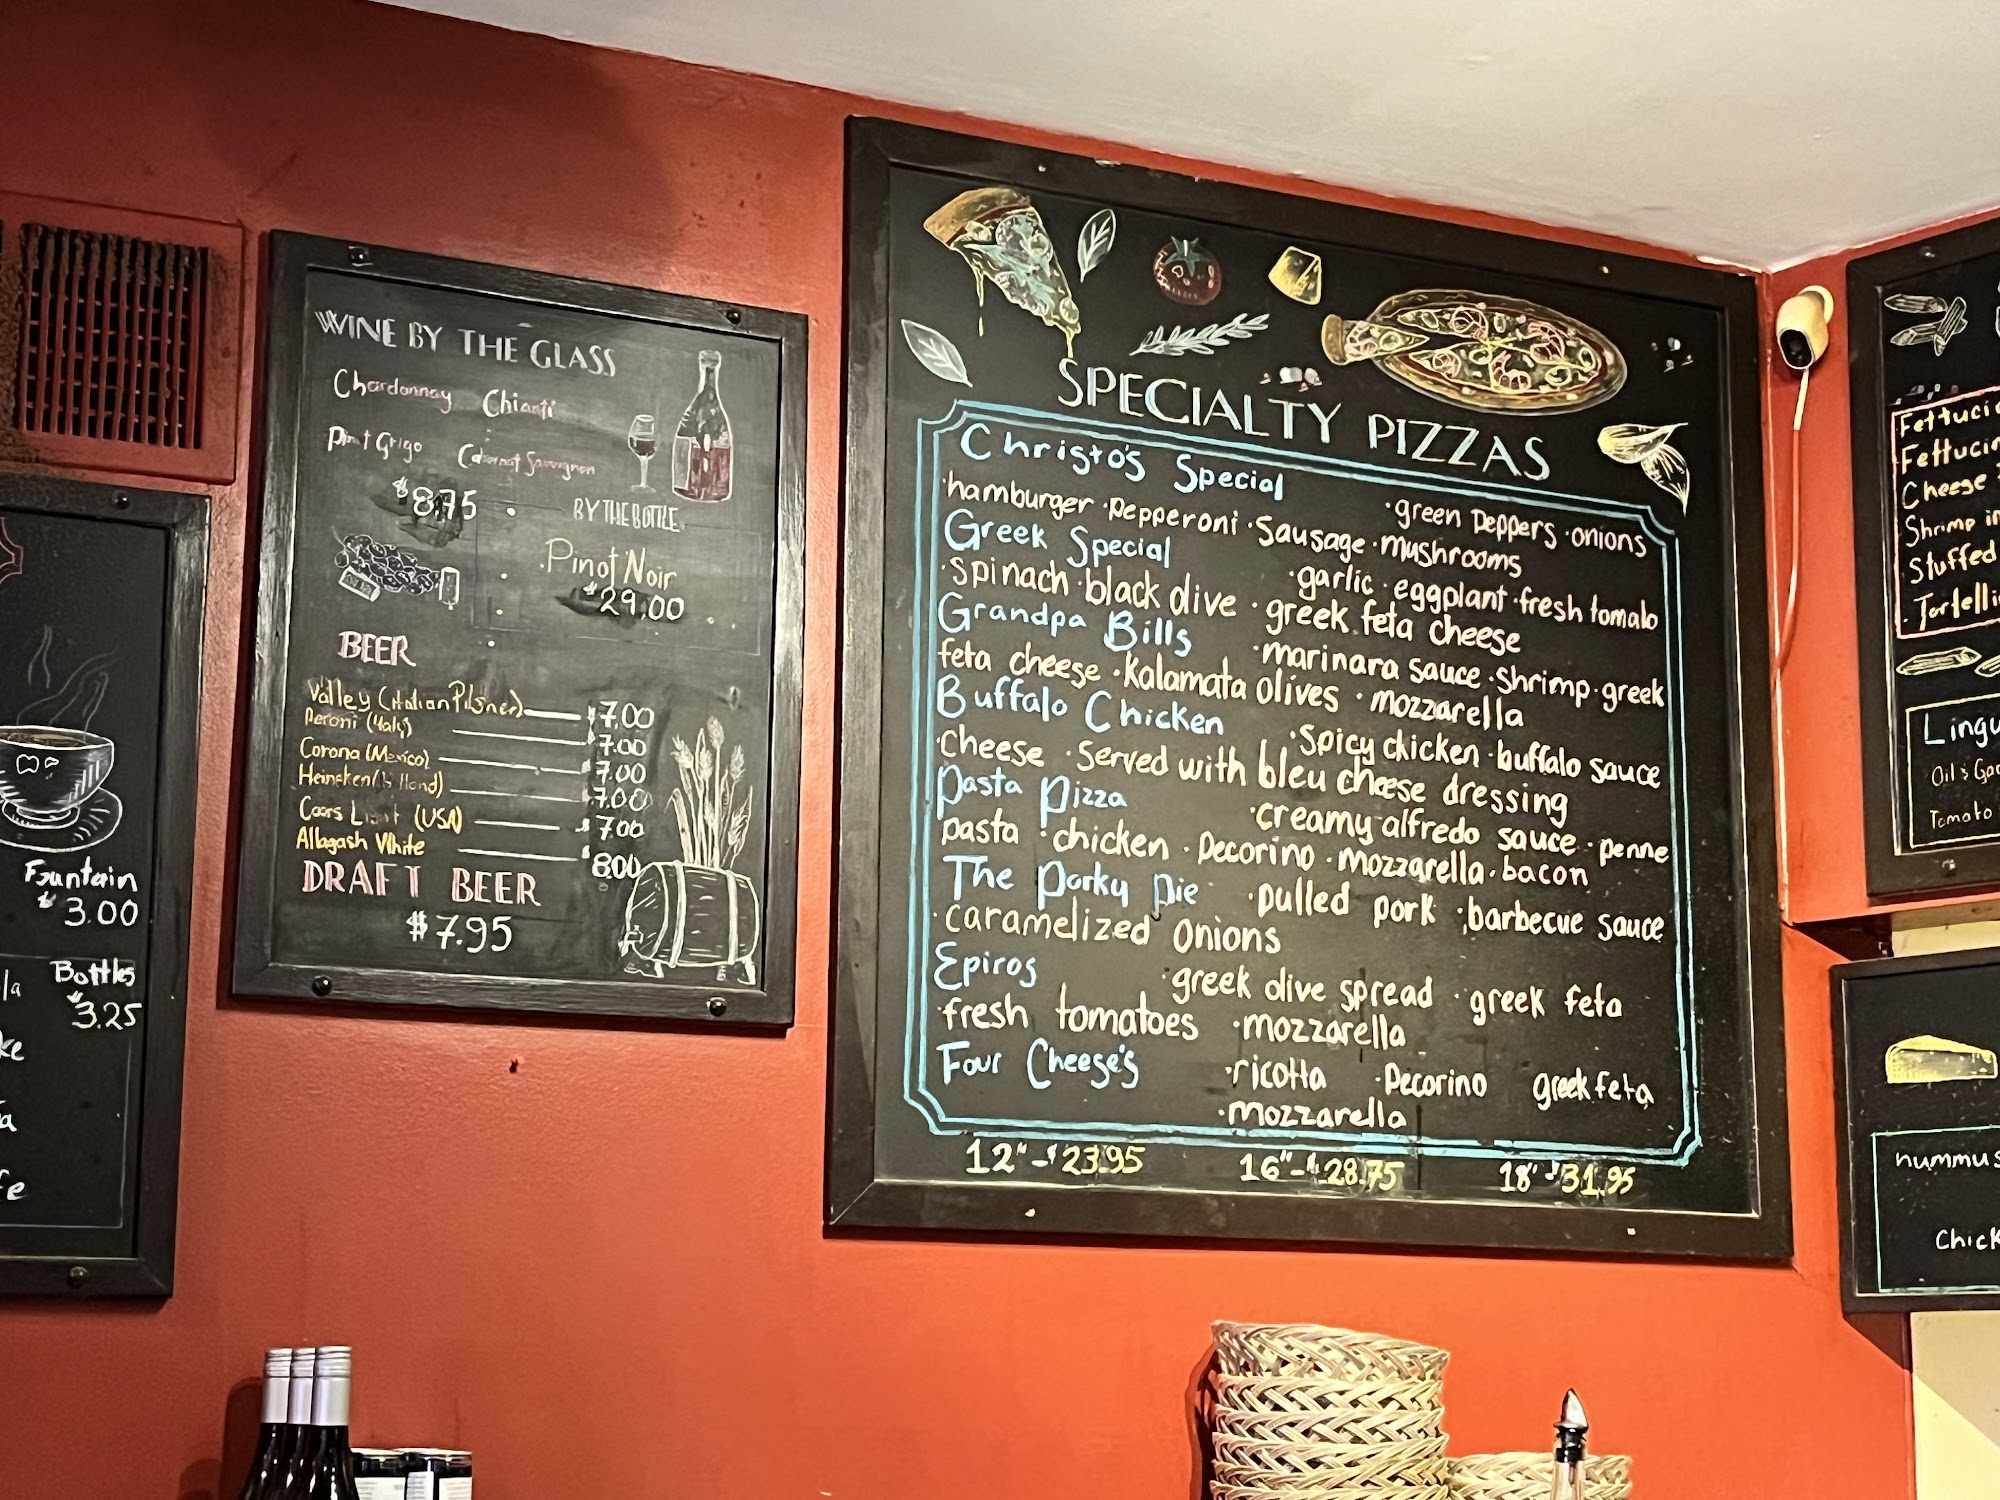 WINE BY THE GLASS
Chardonnay Chianti
Pinot Grigo Cabernet Sauvignon
$8.75
BY THE BOTTLE
Pinot Noir
$29.00
BEER
Valley (Italian Pilsner) $7.00
Peroni (Italy) 7.00
Corona (Mexico) 7.00
Heineken (Holland) 7.00
Coors Light (USA) 7.00
Allagash White 8.00
DRAFT BEER
$7.95
Fountain
$3.00
Bottles
$3.25
SPECIALTY PIZZAS
Christo's Special
·green peppers·onions
·hamburger·pepperoni·sausage·mushrooms
Greek Special
·garlic·eggplant·fresh tomato
·spinach·black olive·greek feta cheese
Grandpa Bills
·marinara sauce·shrimp·greek
feta cheese·kalamata olives·mozzarella
Buffalo Chicken
·spicy chicken·buffalo sauce
·cheese·served with bleu cheese dressing
Pasta Pizza
·creamy alfredo sauce·penne
pasta·chicken·pecorino·mozzarella·bacon
The Porky Pie ·pulled pork·barbecue sauce
·caramelized onions
Epiros ·greek olive spread·greek feta
·fresh tomatoes·mozzarella
Four Cheese's ·ricotta ·pecorino greek feta
·mozzarella
12"-$23.95 16"-$28.75 18"-$31.95
Cheese
Shrimp
Stuffed
Oil &
Tomato